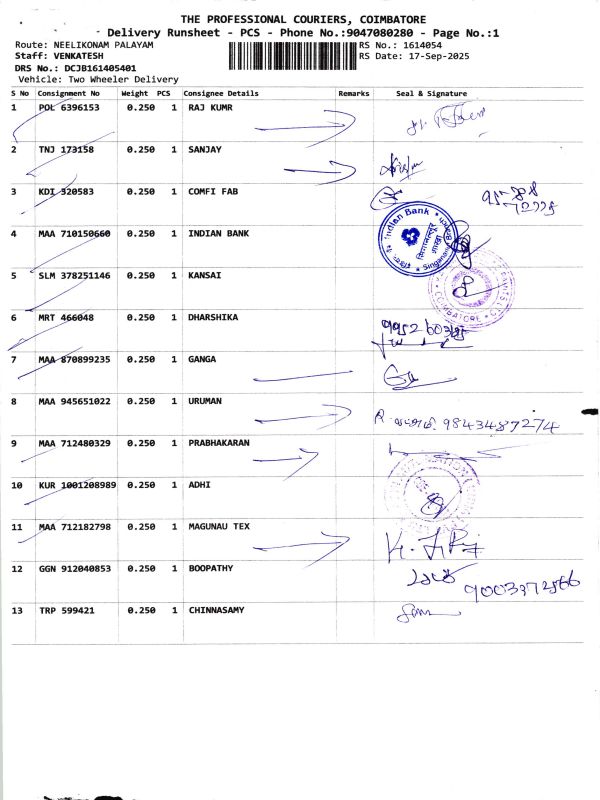 THE PROFESSIONAL COURIERS, COIMBATORE
Delivery Runsheet - PCS - Phone No.:9047080280 - Page No.:1
Route: NEELIKONAM PALAYAM RS No.: 1614054
Staff: VENKATESH RS Date: 17-Sep-2025
DRS No.: DCJB161405401
Vehicle: Two Wheeler Delivery
S No Consignment No Weight PCS Consignee Details Remarks Seal & Signature
1 POL 6396153 0.250 1 RAJ KUMR
2 TNJ 173158 0.250 1 SANJAY
3 KDI 320583 0.250 1 COMFI FAB
4 MAA 710150660 0.250 1 INDIAN BANK Indian Bank
5 SLM 378251146 0.250 1 KANSAI COIMBATORE
6 MRT 466048 0.250 1 DHARSHIKA
7 MAA 870899235 0.250 1 GANGA
8 MAA 945651022 0.250 1 URUMAN 9843487274
9 MAA 712480329 0.250 1 PRABHAKARAN
10 KUR 1001208989 0.250 1 ADHI
11 MAA 712182798 0.250 1 MAGUNAU TEX
12 GGN 912040853 0.250 1 BOOPATHY
13 TRP 599421 0.250 1 CHINNASAMY